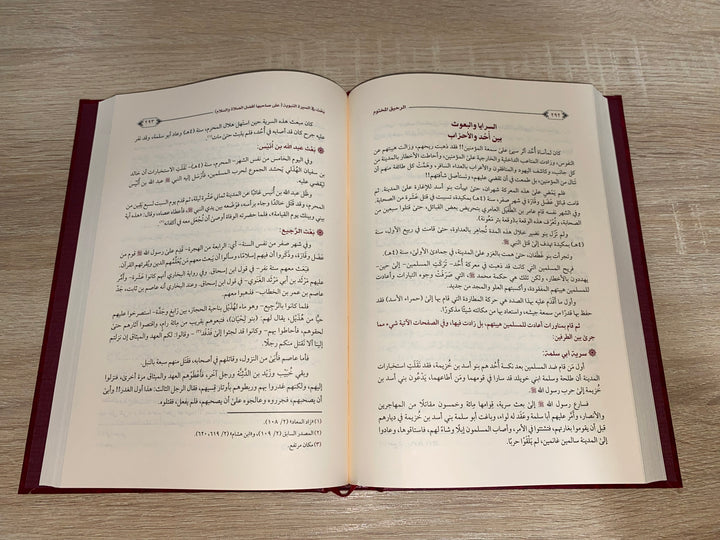 الرحيق المختوم
٢٩٢
السرايا والبعوث
بين أحد والأحزاب
كان لمأساة أُحُد أثر سيئ على سمعة المؤمنين!! فقد ذهبت ريحهم، وزالت هيبتهم عن
النفوس، وزادت المتاعب الداخلية والخارجية على المؤمنين، وأحاطت الأخطار بالمدينة من
كل جانب، وكاشف اليهود والمنافقون والأعراب بالعداء السافر، وهمَّت كل طائفة منهم أن
تنال من المؤمنين، بل طمعت في أن تقضي عليهم، وتستأصل شأفتهم!!
فلم يمض على هذه المعركة شهران، حتى تهيأت بنو أسد للإغارة على المدينة. ثم
قامت قبائل عضل وقارة في شهر صفر، سنة (٤هـ)، بمكيدة، تسببت في قتل عشرة من الصحابة.
وفي الشهر نفسه قام عامر بن الطفيل العامري بتحريض بعض القبائل، حتى قتلوا سبعين من
الصحابة، وتعرف هذه الوقعة بوقعة بئر معونة،
ولم تزل بنو نضير خلال هذه المدة تجاهر بالعداوة، حتى قامت في ربيع الأول، سنة
(٤هـ) بمكيدة تهدف إلى قتل النبي ﷺ.
وتجرأت بنو غطفان، حتى همت بالغزو على المدينة، في جمادى الأولى، سنة (٤هـ).
فريح المسلمين التي كانت قد ذهبت في معركة أُحُد- تركت المسلمين- إلى حين-
يهددون بالأخطار، ولكن تلك هي حكمة محمد ﷺ، التي صرفت وجوه التيارات وأعادت
للمسلمين هيبتهم المفقودة، وأكسبتهم العلو والمجد من جديد.
وأول ما أقدم عليه بهذا الصدد هي حركة المطاردة التي قام بها إلى (حمراء الأسد) فقد
حفظ بها قدرًا من سمعة جيشه، واستعاد بها من مكانتهم ما
ثم قام بمناورات أعادت للمسلمين هيبتهم، بل زادت فيها، وفي الصفحات الآتية شيء مما
جرى بين الطرفين:
سرية أبي سلمة:
أول من قام ضد المسلمين بعد نكسة أُحُد هم بنو أسد بن خُزيمة، فقد نقلت استخبارات
المدينة أن طلحة وسلمة ابني خويلد قد سارا في قومهما ومن أطاعهما، يدعون بني أسد بن
خزيمة إلى حرب رسول الله ﷺ.
فسارع رسول الله ﷺ إلى بعث سرية، قوامها مائة وخمسون مقاتلًا من المهاجرين
والأنصار، وأمَّر عليهم أبا سلمة وعقد له لواء، وباغت أبو سلمة بني أسد بن خزيمة في ديارهم
قبل أن يقوموا بغارتهم، فتشتتوا في الأمر، وأصاب المسلمون إبلًا وشاء لهم، فاستاقوها، وعادوا
إلى المدينة سالمين غانمين، لم يلقوا حربًا.
بحث في السيرة النبوية (على صاحبها أفضل الصلاة والسلام)
٢٩٣
كان مبعث هذه السرية حين استهل هلال المحرم، سنة (٤هـ) وعاد أبو سلمة، وقد نفر
عليه جرح كان قد أصابه في أُحُد، فلم يلبث حتى مات(١).
بعث عبد الله بن أُنيس:
وفي اليوم الخامس من نفس الشهر- المحرم، سنة (٤هـ)، نقلت الاستخبارات أن خالد
بن سفيان الهُذلي يحشد الجموع لحرب المسلمين، فأرسل إليه النبي ﷺ عبد الله بن أُنيس
ليقضي عليه.
وظل عبد الله بن أنيس غائبًا عن المدينة ثماني عشرة ليلة، ثم قدم يوم السبت لسبع بقين من
المحرم، وقد قتل خالدًا وجاء برأسه، فوضعه بين يدي النبي ﷺ، فأعطاه عصا، وقال: «هذه آية
بيني وبينك يوم القيامة»، فلما حضرته الوفاة أوصى أن تُجعل معه في أكفانه(٢).
بعث الرجيع:
وفي شهر صفر من نفس السنة- أي: الرابعة من الهجرة- قدم على رسول الله ﷺ قوم من
عضل وقارة، وذكروا أن فيهم إسلامًا، وسألوا أن يبعث معهم من يعلمهم الدين ويُقرئهم القرآن،
فبعث معهم ستة نفر- في قول ابن إسحاق. وفي رواية البخاري أنهم كانوا عشرة- وأمَّر
عليهم مَرْثَد بن أبي مَرْثَد الغَنَوي- في قول ابن إسحاق، وعند البخاري أنه عاصم بن ثابت، جد
عاصم بن عمر بن الخطاب- فذهبوا معهم.
فلما كانوا بالرجيع- وهو ماء لهُذيل بناحية الحجاز، بين رابغ وجدة- استصرخوا عليهم
حيًا من هُذيل، يقال لهم: (بنو لحيان)، فتبعوهم بقريب من مائة رام، واقتصوا آثارهم حتى
لحقوهم، فأحاطوا بهم- وكانوا قد لجئوا إلى فَدْفَد(٣)- وقالوا: لكم العهد والميثاق إن نزلتم
إلينا ألا نقتل منكم رجلًا.
فأما عاصم فأبى من النزول، وقاتلهم في أصحابه، فقتل منهم سبعة بالنبل.
وبقي خُبيب وزيد بن الدَّثِنَة ورجل آخر، فأعطوهم العهد والميثاق مرة أخرى، فنزلوا
إليهم، ولكنهم غدروا بهم وربطوهم بأوتار قِسيِّهم، فقال الرجل الثالث: هذا أول الغدر!! وأبى
أن يصحبهم، فجرروه وعالجوه على أن يصحبهم، فلم يفعل، فقتلوه.
(١) «زاد المعاد» (٢/ ١٠٨).
(٢) المصدر السابق (٢/ ١٠٩)، و«ابن هشام» (٢/ ٦١٩، ٦٢٠).
(٣) مكان مرتفع.